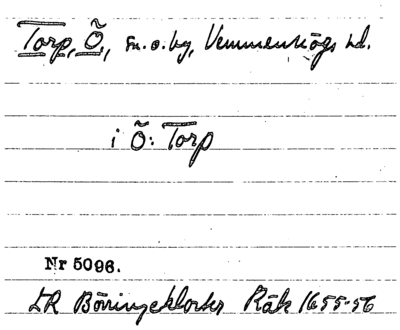 Torp, Ö, sn. o. by, Vemmenhögs hd.
i Ö: Torp
Nr 5096.
LR Börringeklosters Räk 1655-56